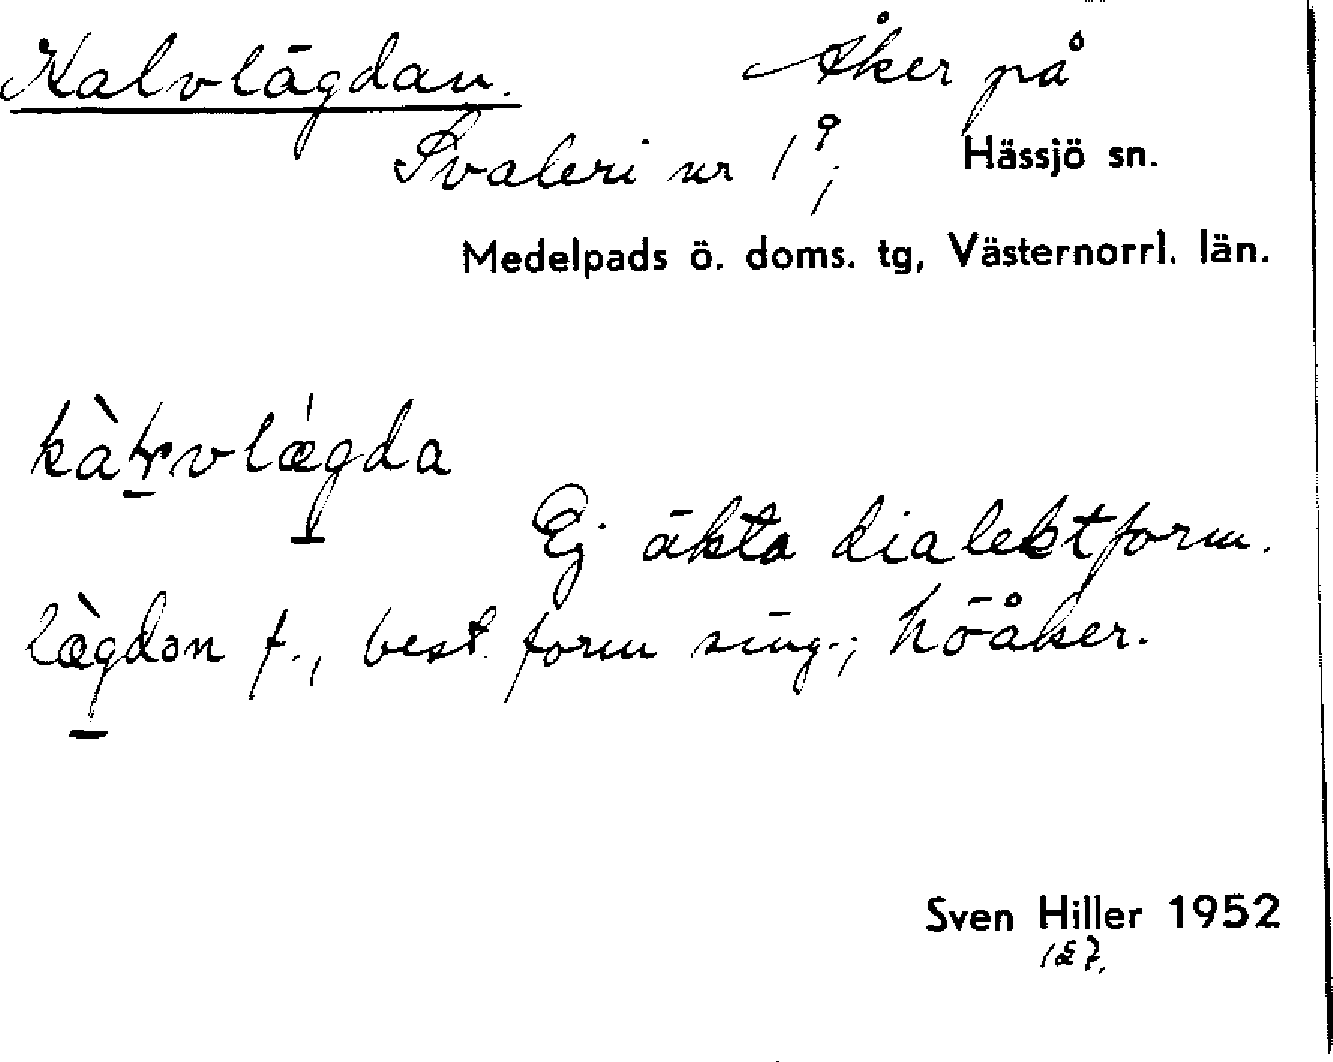 Kalvlägdan. Åker på
Svaleri nr 1⁹; Hässjö sn.
Medelpads ö. doms. tg, Västernorrl. län.
lægda
Ej äkta dialektform.
lægdən f., best. form sing.; höåker.
Sven Hiller 1952